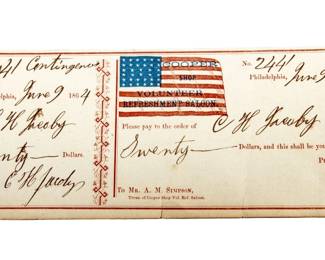 41 Contingence
delphia, June 9 1864
H Jacoby
nty — Dollars.
C H Jacoby
COOPER
SHOP
VOLUNTEER
REFRESHMENT SALOON.
No. 2441
Philadelphia, June 9
Please pay to the order of C H Jacoby
Twenty — Dollars, and this shall be yo
To MR. A. M. SIMPSON,
Treas. of Cooper Shop Vol. Ref. Saloon.